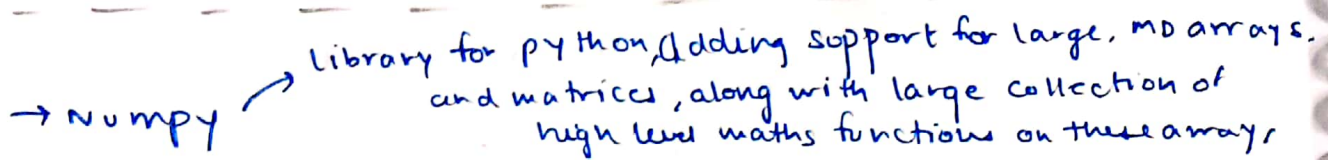 library for python, adding support for large, MD arrays.
and matrices, along with large collection of
→ Numpy
high level maths functions on these arrays